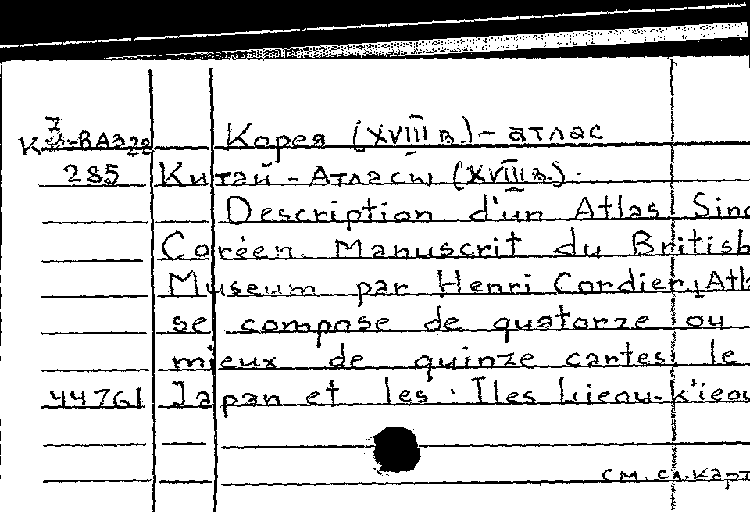 Корея (XVIII в.) - атлас
285 Китай - Атласы (XVIII в.).
Description d'un Atlas Sino
Coréen. Manuscrit du British
Museum par Henri Cordier, Atl
se compose de quatorze ou
mieux de quinze cartes le
44761 Japan et les Iles Lieou-k'ieou
см. сл. карт